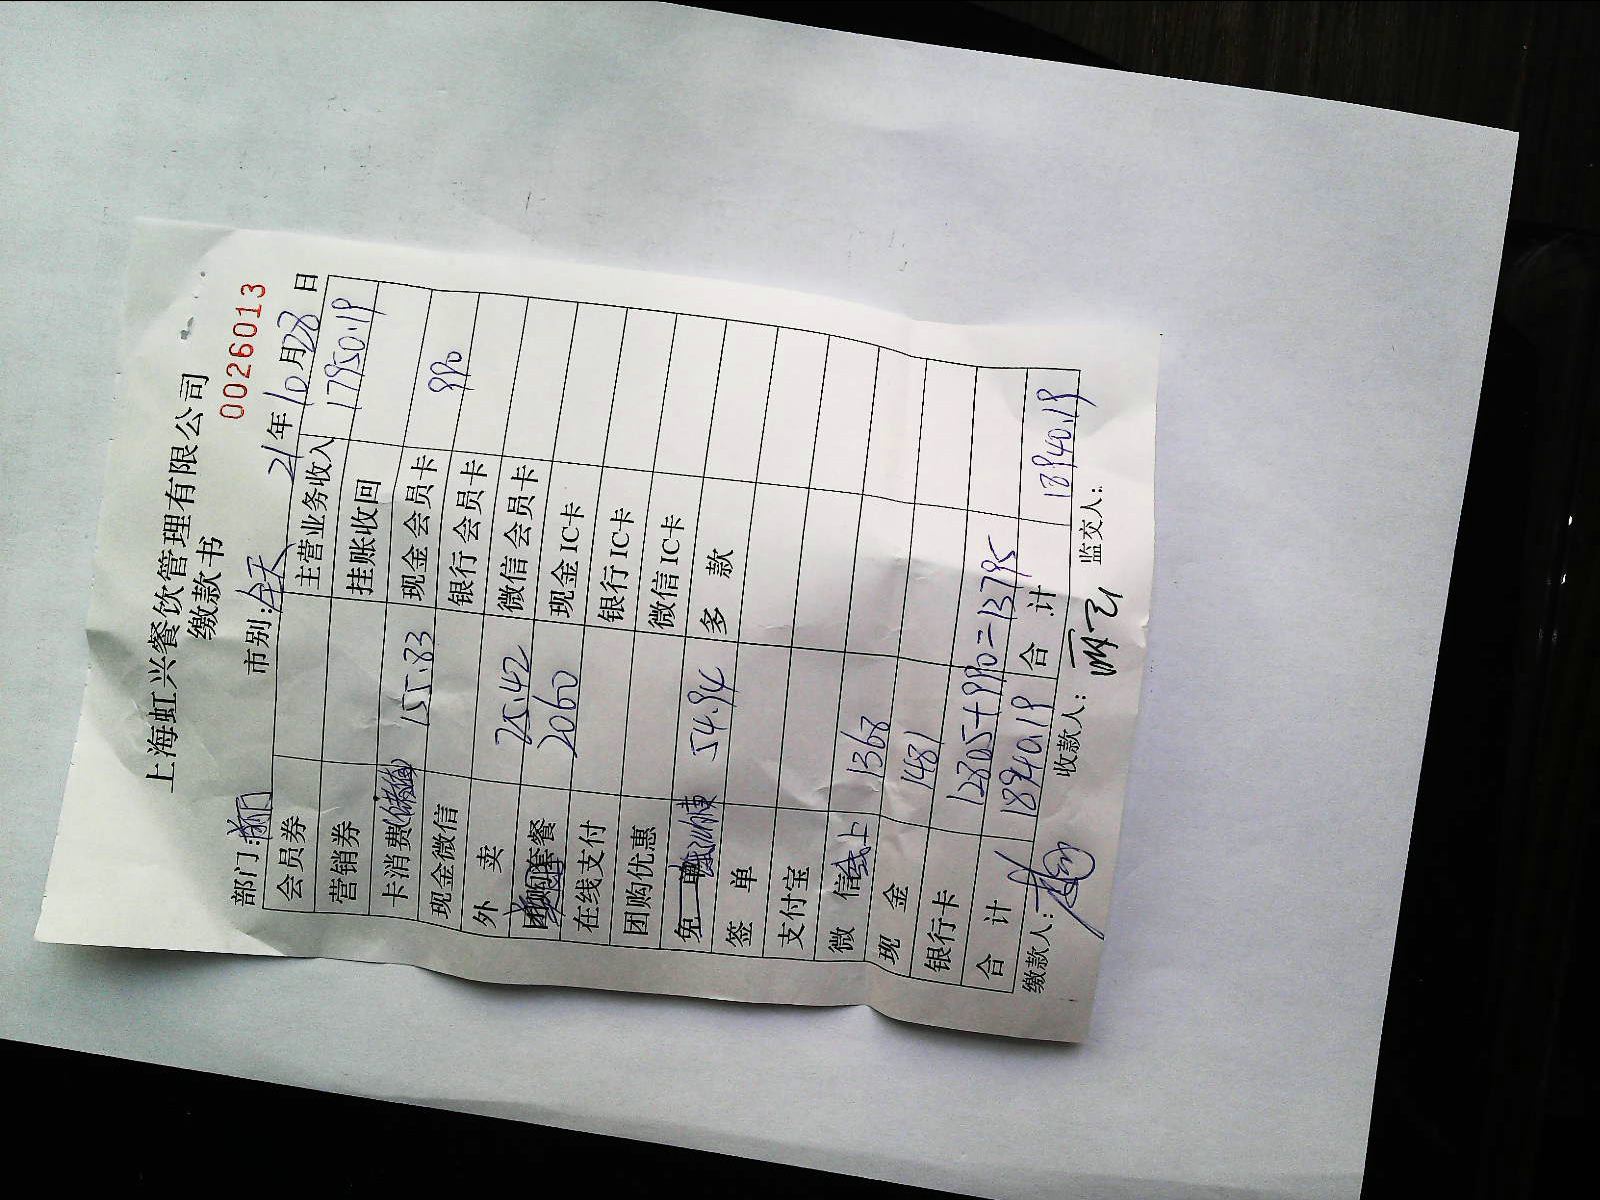 上海虹兴餐饮管理有限公司
缴款书
0026013
部门: 市别:全天 21年10月28日
会员券 主营业务收入 17950.19
营销券 挂账收回
卡消费(储值) 155.83 现金会员卡 990
现金微信 银行会员卡
外卖 25.42 微信会员卡
团购套餐 2060 现金IC卡
在线支付 银行IC卡
团购优惠 微信IC卡
免单 54.94 多款
签单
支付宝
微信线上 1368
现金 1481
银行卡 12805+990=13795
合计 18940.19 合计 18940.19
缴款人: 收款人: 监交人: